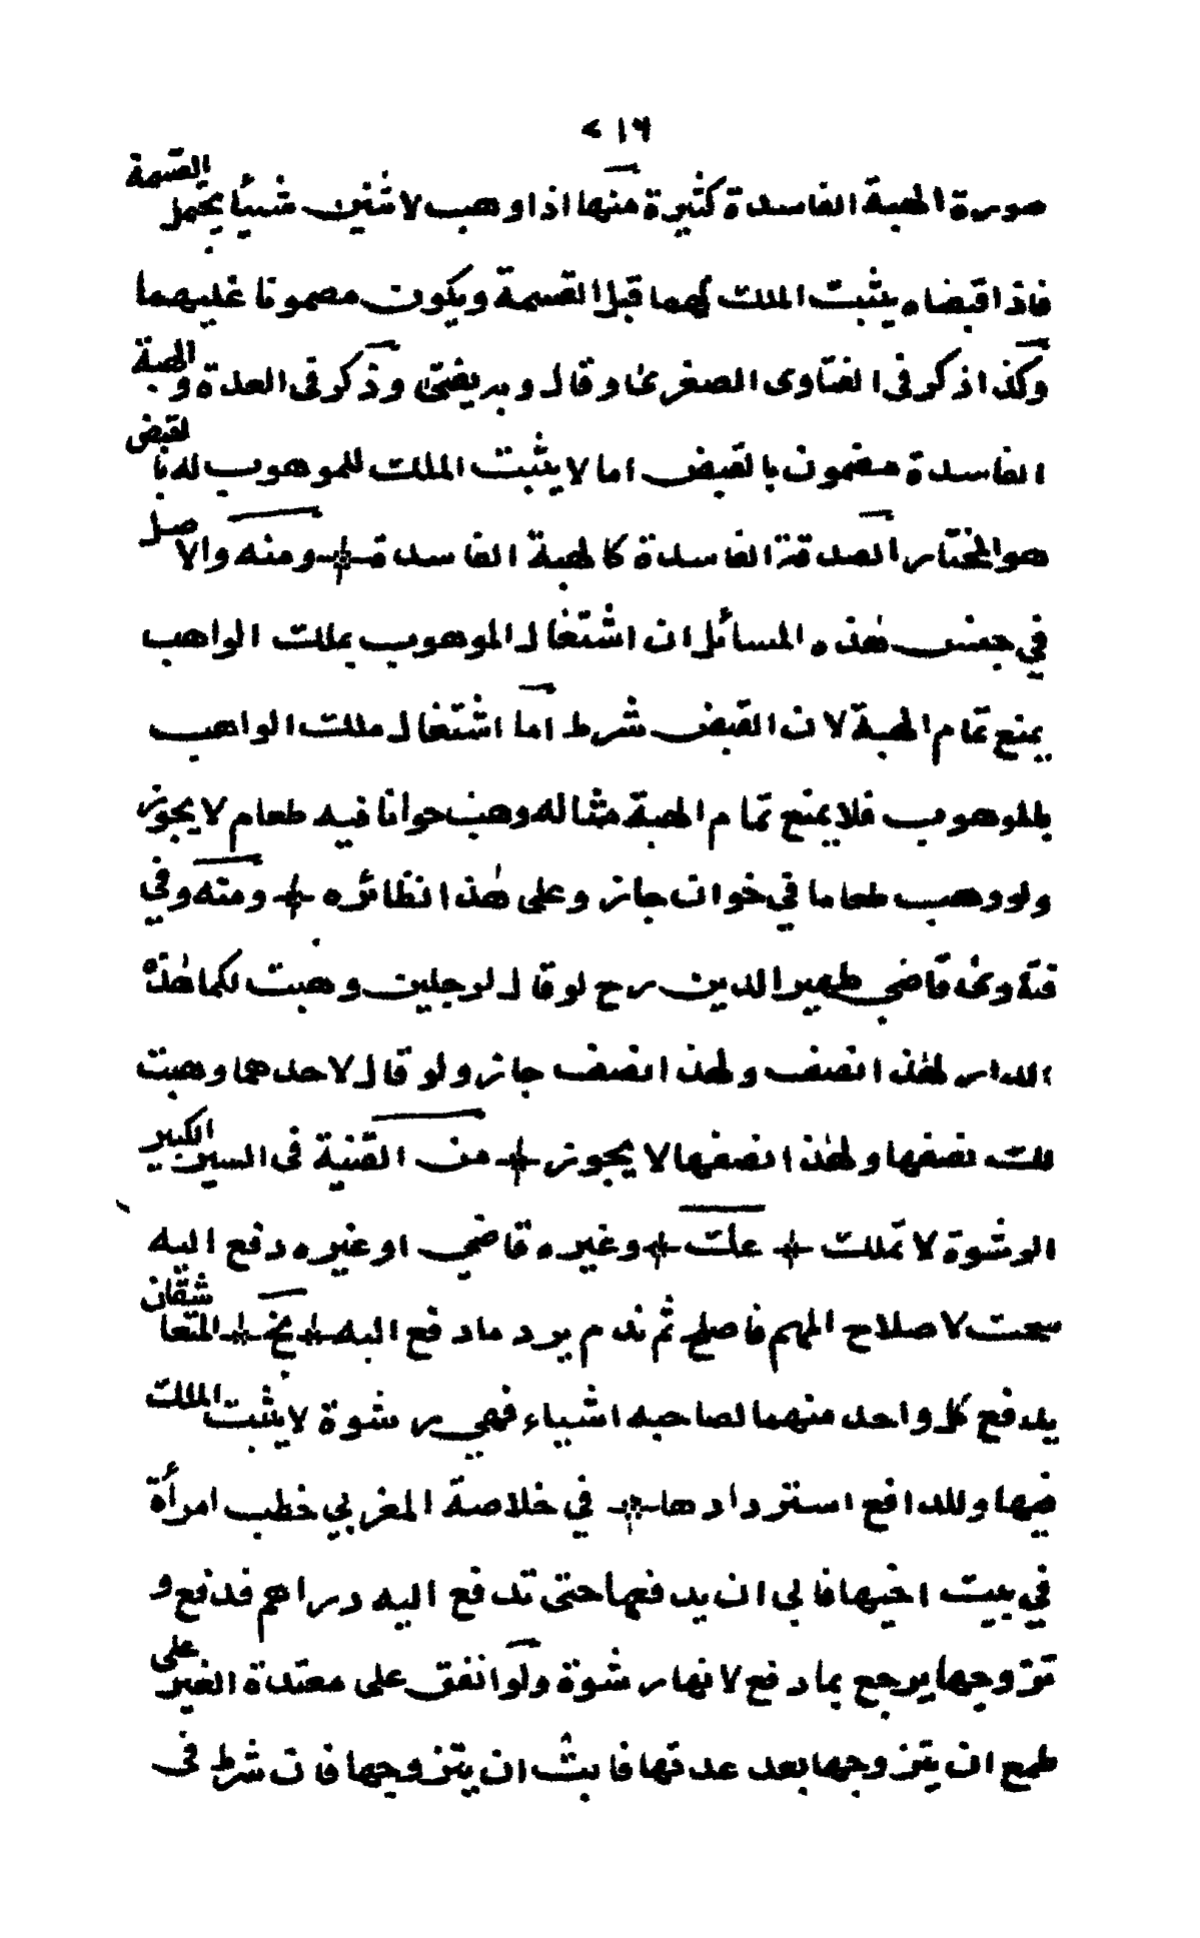 ٢١٦
صورة الهبة الفاسدة كثيرة منها اذا وهب لاثنين شيئا يحتمل القسمة
فاذا قبضاه يثبت الملك لهما قبل القسمة ويكون مضمونا عليهما
وكذا ذكر فى الفتاوى الصغرى وقال وبه يفتى وذكر فى العدة والهبة
الفاسدة مضمون بالقبض اما لا يثبت الملك للموهوب له بالقبض
هو المختار الصدقة الفاسدة كالهبة الفاسدة ومنه والاصل
في جنس هذه المسائل ان اشتغال الموهوب بملك الواهب
يمنع تمام الهبة لان القبض شرط اما اشتغال ملك الواهب
بالموهوب فلا يمنع تمام الهبة مثاله وهب خوانا فيه طعام لا يجوز
ولو وهب طعاما في خوان جاز وعلى هذا نظائره ومنه وفي
فتاوى قاضي ظهير الدين رح لو قال لرجلين وهبت لكما هذه
الدار لهذا نصف ولهذا نصف جاز ولو قال لاحدهما وهبت
لك نصفها ولهذا نصفها لا يجوز من القنية فى السير الكبير
الرشوة لا تملك عك وغيره قاضي او غيره دفع اليه
سحت لاصلاح المهم فاصلح ثم ندم يرد ما دفع اليه بخ المتعاشقان
يدفع كل واحد منهما لصاحبه اشياء فهي رشوة لا يثبت الملك
فيها وللدافع استردادها في خلاصة المغربي خطب امرأة
في بيت اخيها فابى ان يدفعها حتى تدفع اليه دراهم فدفع و
تزوجها يرجع بما دفع لانها رشوة ولو انفق على معتدة الغير على
طمع ان يتزوجها بعد عدتها فابت ان يتزوجها فان شرط فى